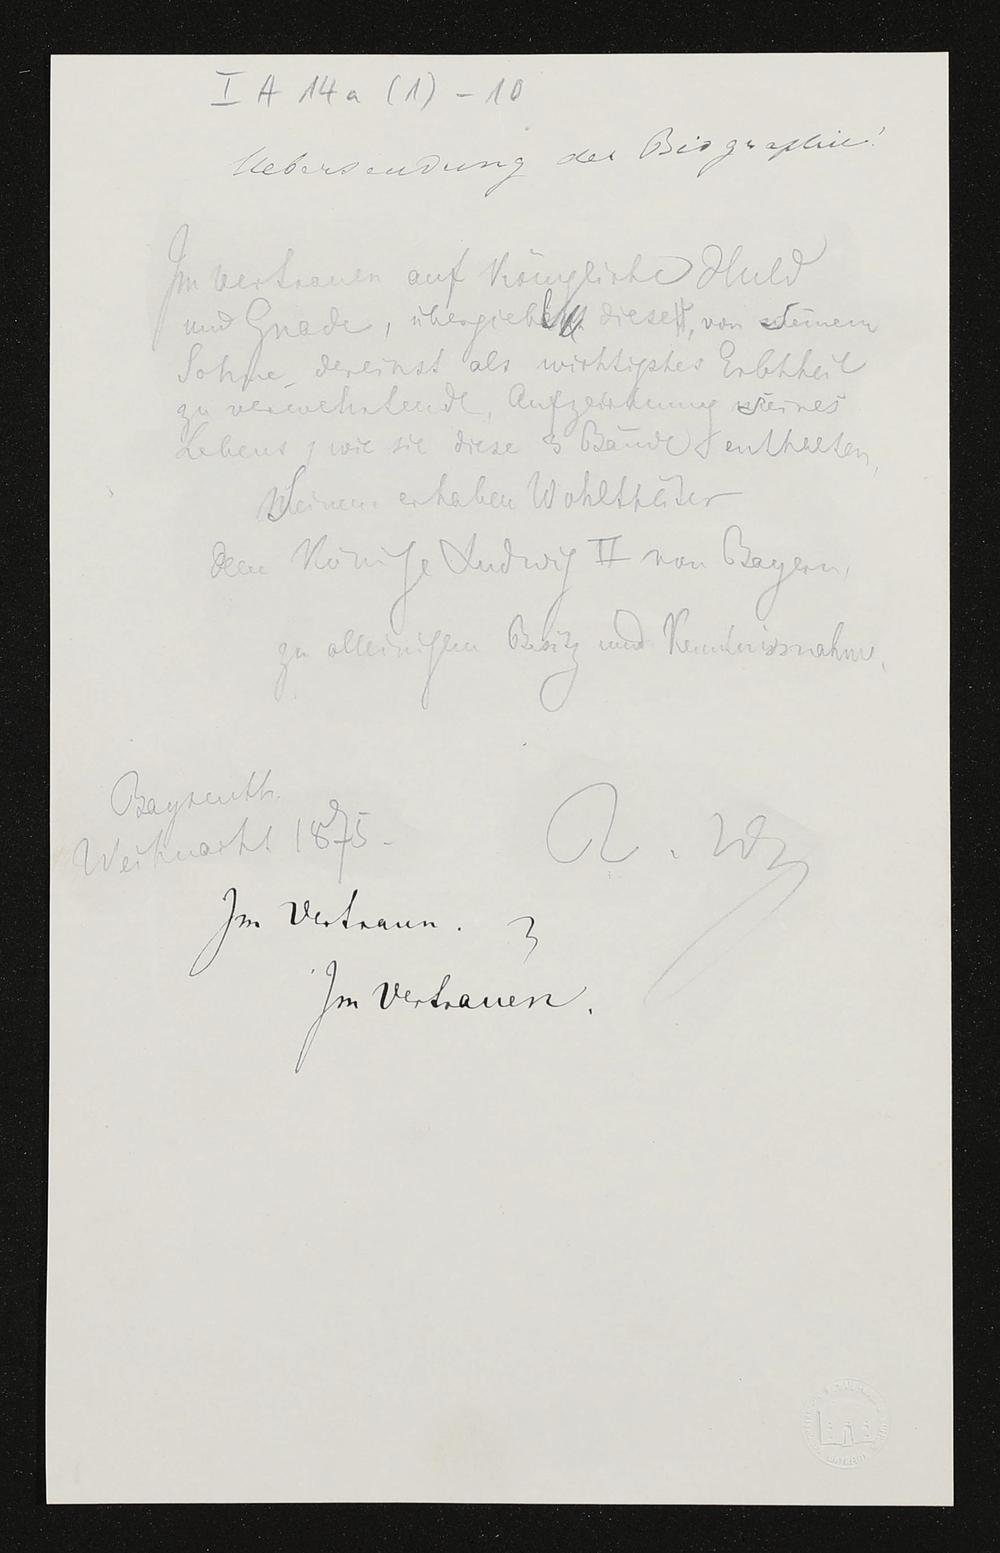 I A 14a (1) - 10
Uebersendung der Biographie!
Im Vertrauen auf Königliche Huld
und Gnade, diese, von seinem
Sohne, dereinst als wichtigstes Erbtheil
zu verwehrtende, Aufzeichnung seines
Lebens, wie sie diese 3 Bände enthalten,
Seinem erhaben Wohlthäter
dem Könige Ludwig II von Bayern,
zu alleinigem Besitz und Kenntnissnahme,
Bayreuth.
Weihnacht 1875.
R. Wg
Im Vertraun. 3
Im Vertrauen.